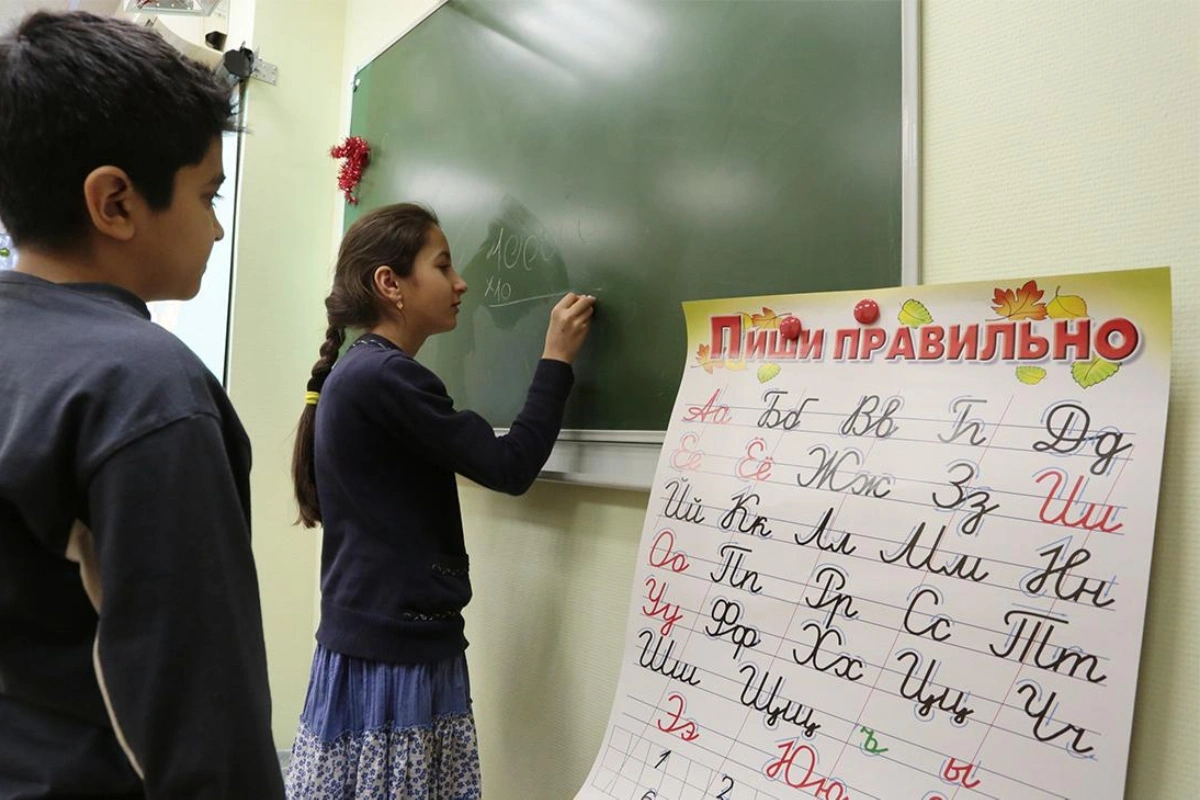 1000
×10
Пиши правильно
Аа Бб Вв Гг Дд
Ее Ёё Жж Зз Ии
Йй Кк Лл Мм Нн
Оо Пп Рр Сс Тт
Уу Фф Хх Цц Чч
Шш Щщ ъ ы
Ээ Юю
1 2
6